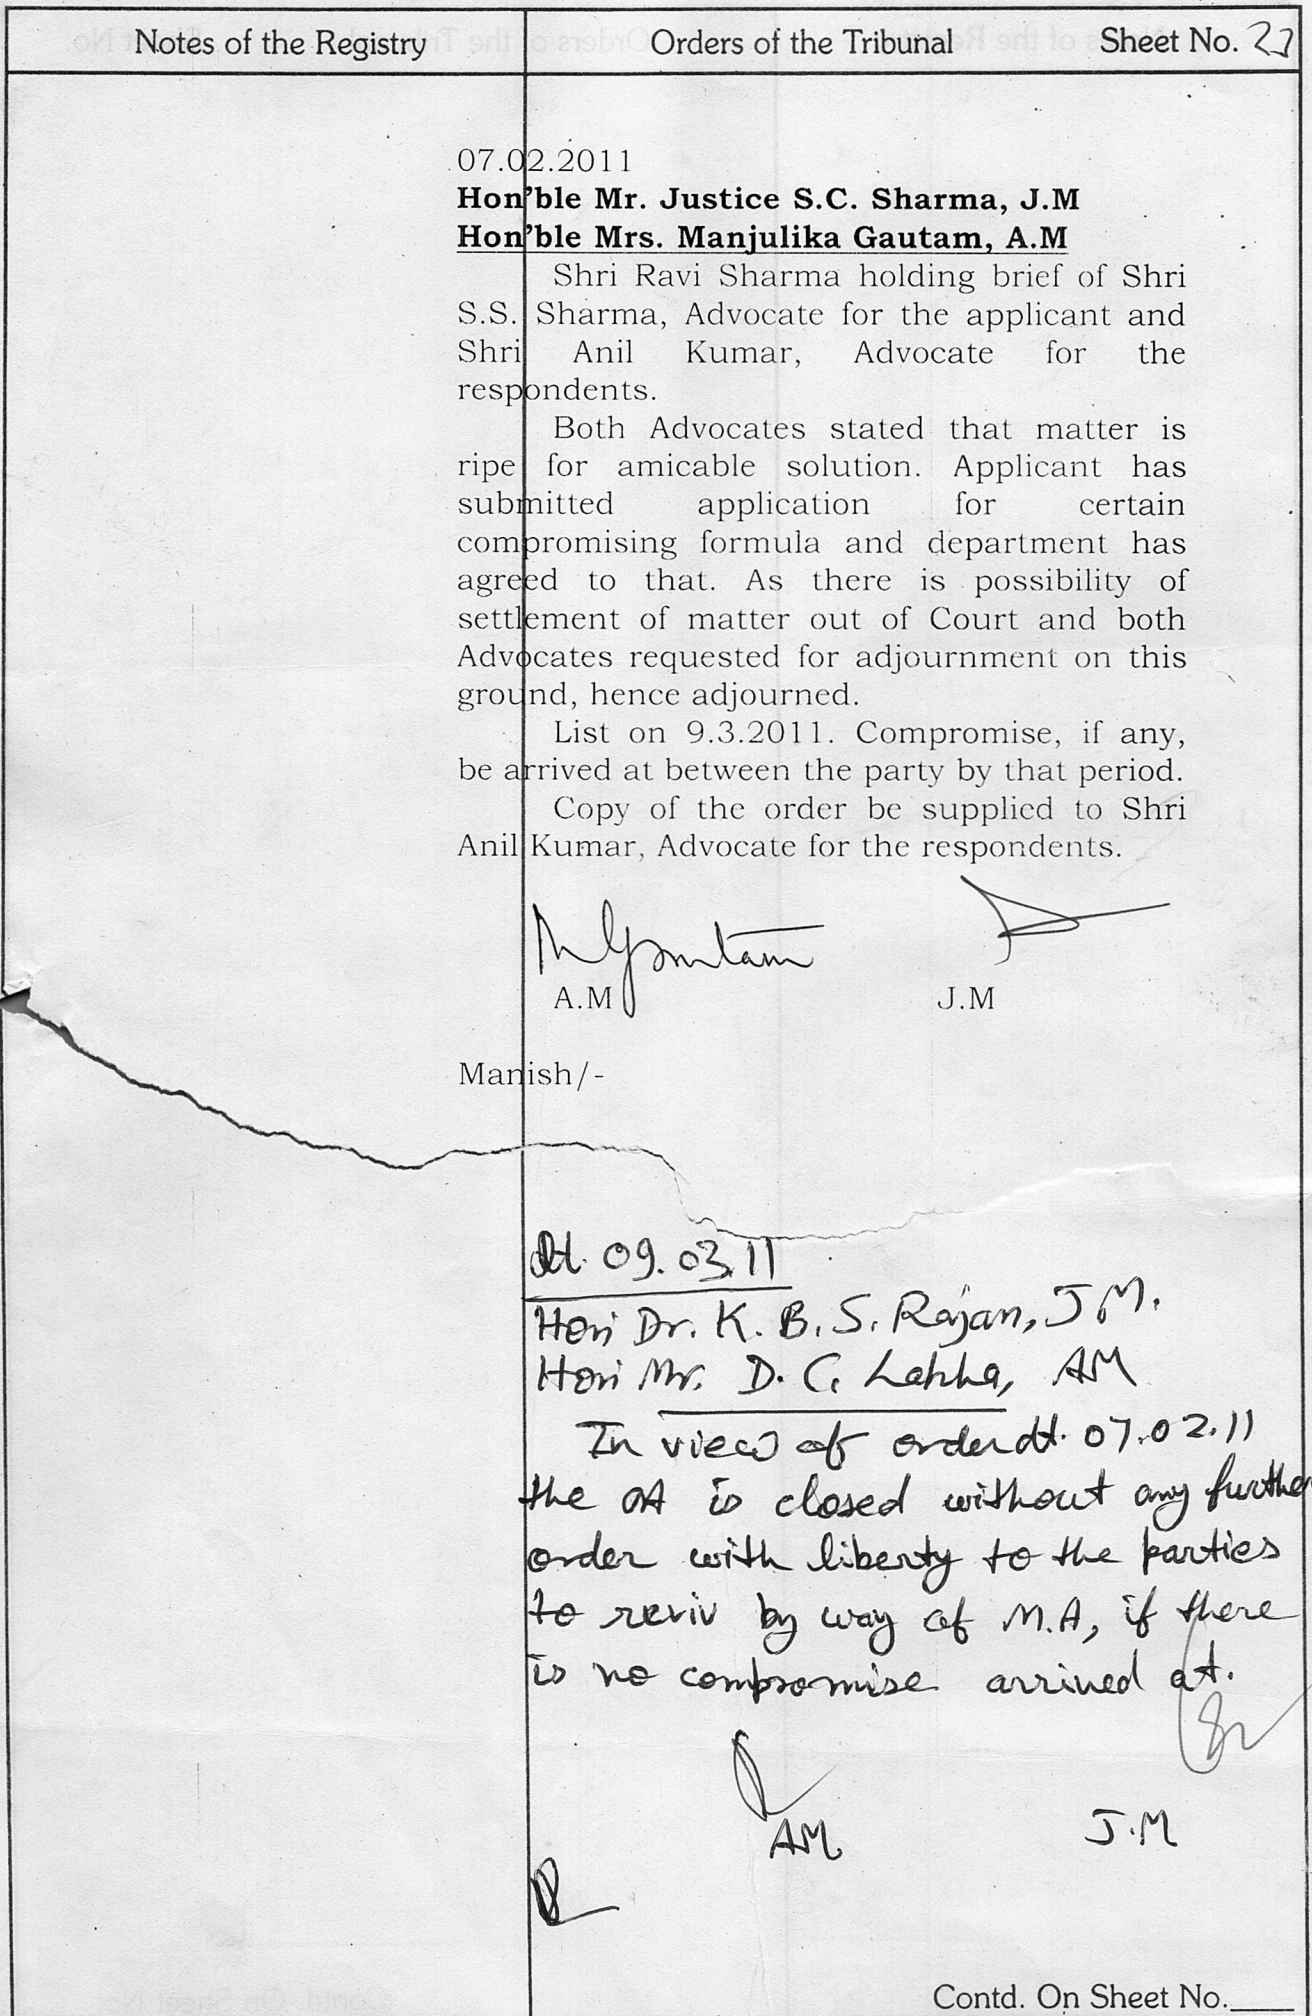 Notes of the Registry Orders of the Tribunal Sheet No.
07.02.2011
Hon'ble Mr. Justice S.C. Sharma, J.M
Hon'ble Mrs. Manjulika Gautam, A.M
Shri Ravi Sharma holding brief of Shri
S.S. Sharma, Advocate for the applicant and
Shri Anil Kumar, Advocate for the
respondents.
Both Advocates stated that matter is
ripe for amicable solution. Applicant has
submitted application for certain
compromising formula and department has
agreed to that. As there is possibility of
settlement of matter out of Court and both
Advocates requested for adjournment on this
ground, hence adjourned.
List on 9.3.2011. Compromise, if any,
be arrived at between the party by that period.
Copy of the order be supplied to Shri
Anil Kumar, Advocate for the respondents.
A.M J.M
Manish/-
dt. 09.03.11
Hon Dr. K. B. S. Rajan, J.M.
Hon Mr. D. C. Lakha, AM
In view of order dt. 07.02.11
the OA is closed without any further
order with liberty to the parties
to reviv by way of M.A, if there
is no compromise arrived at.
AM J.M
Contd. On Sheet No.